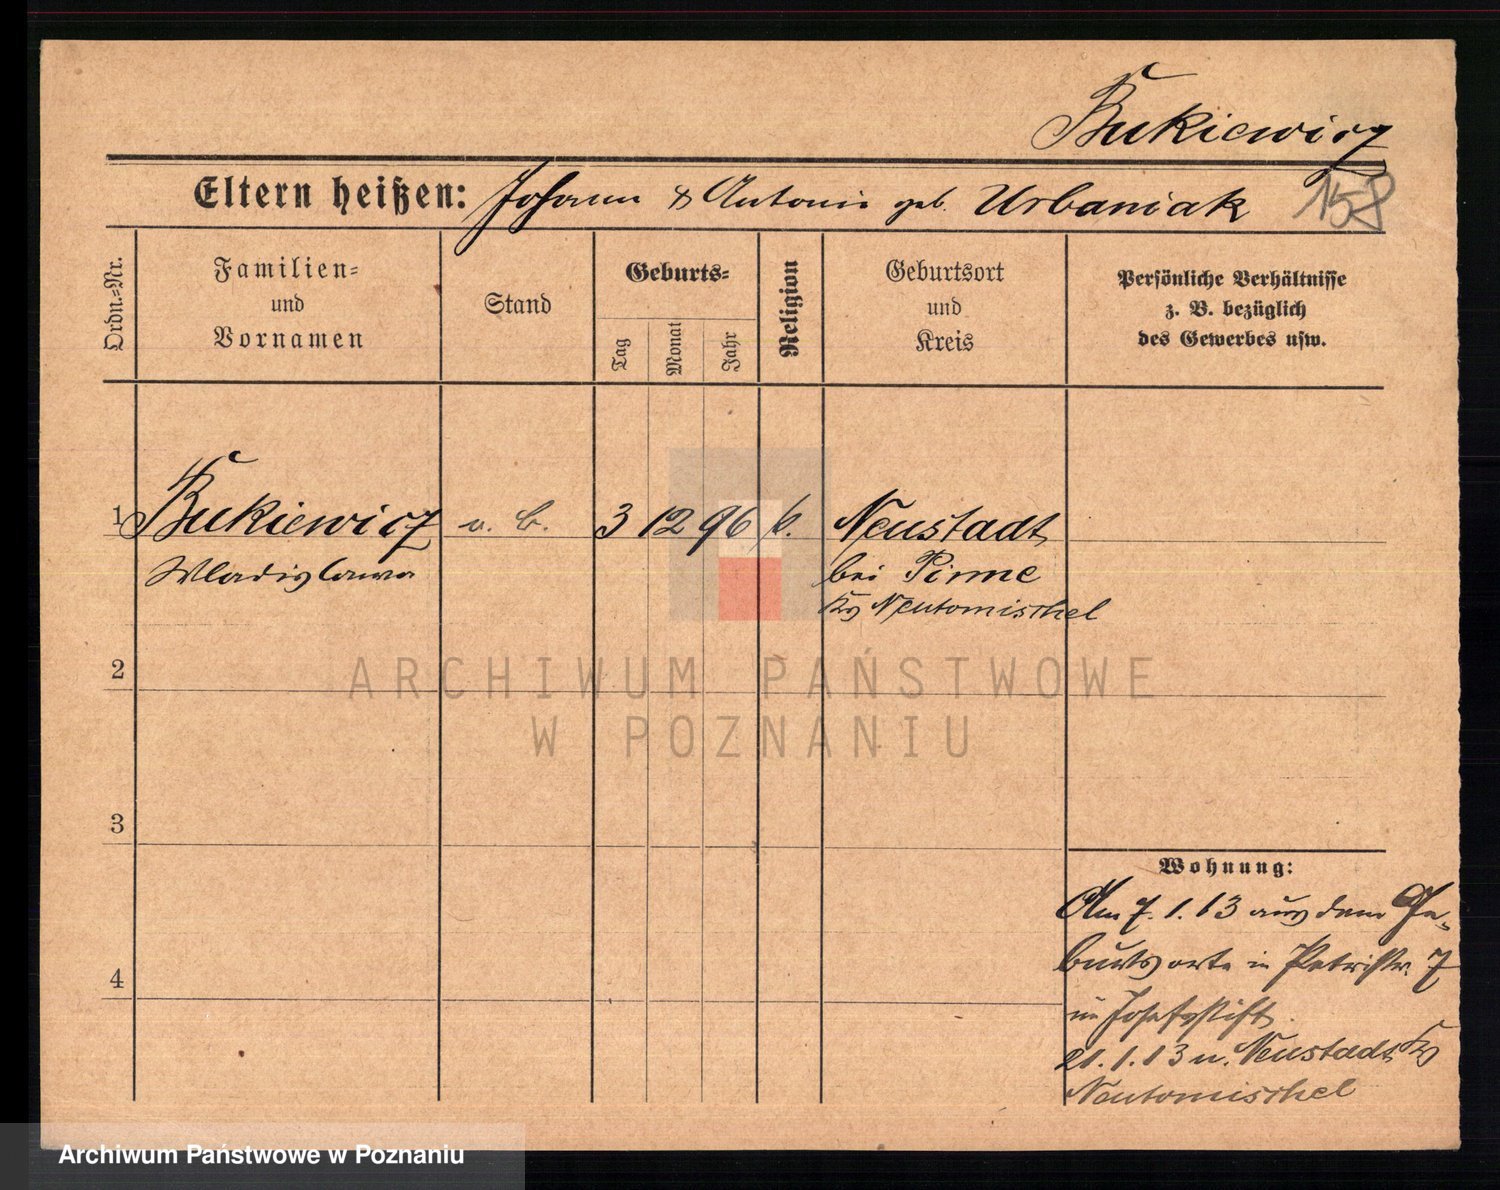 Bukiewicz
158
Eltern heißen: Johann & Antonie geb. Urbaniak
Ordn.-Nr.
Familien-
und
Vornamen
Stand
Geburts-
Tag
Monat
Jahr
Religion
Geburtsort
und
Kreis
Persönliche Verhältnisse
z. B. bezüglich
des Gewerbes usw.
1 Bukiewicz 3 12 96 k. Neustadt
Wladislawa bei Pinne
Krs Neutomischel
ARCHIWUM PAŃSTWOWE
W POZNANIU
2
3
4
Wohnung:
Am 7.1.13 aus dem Ge-
burtsorte in Petristr. 7
im Josefsstift.
21.1.13 n. Neustadt Krs
Neutomischel
Archiwum Państwowe w Poznaniu